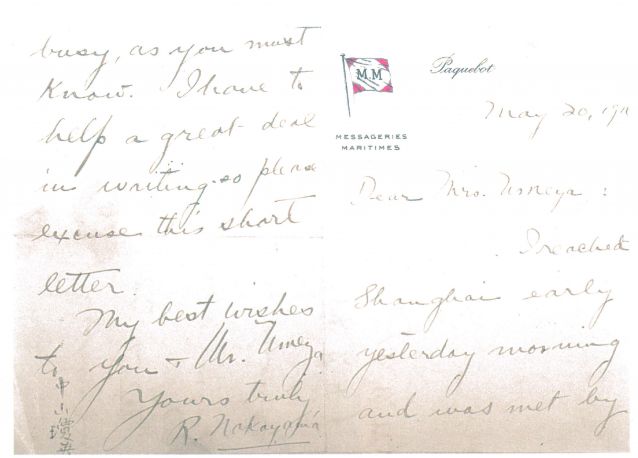 M.M
MESSAGERIES
MARITIMES
Paquebot
May 20,
Dear Mrs. Umeya :
I reached
Shanghai early
yesterday morning
and was met by
busy, as you must
know. I have to
help a great deal
in writing so please
excuse this short
letter.
My best wishes
to you + Mr. Umeya.
Yours truly
R. Nakayama
中山瓊英